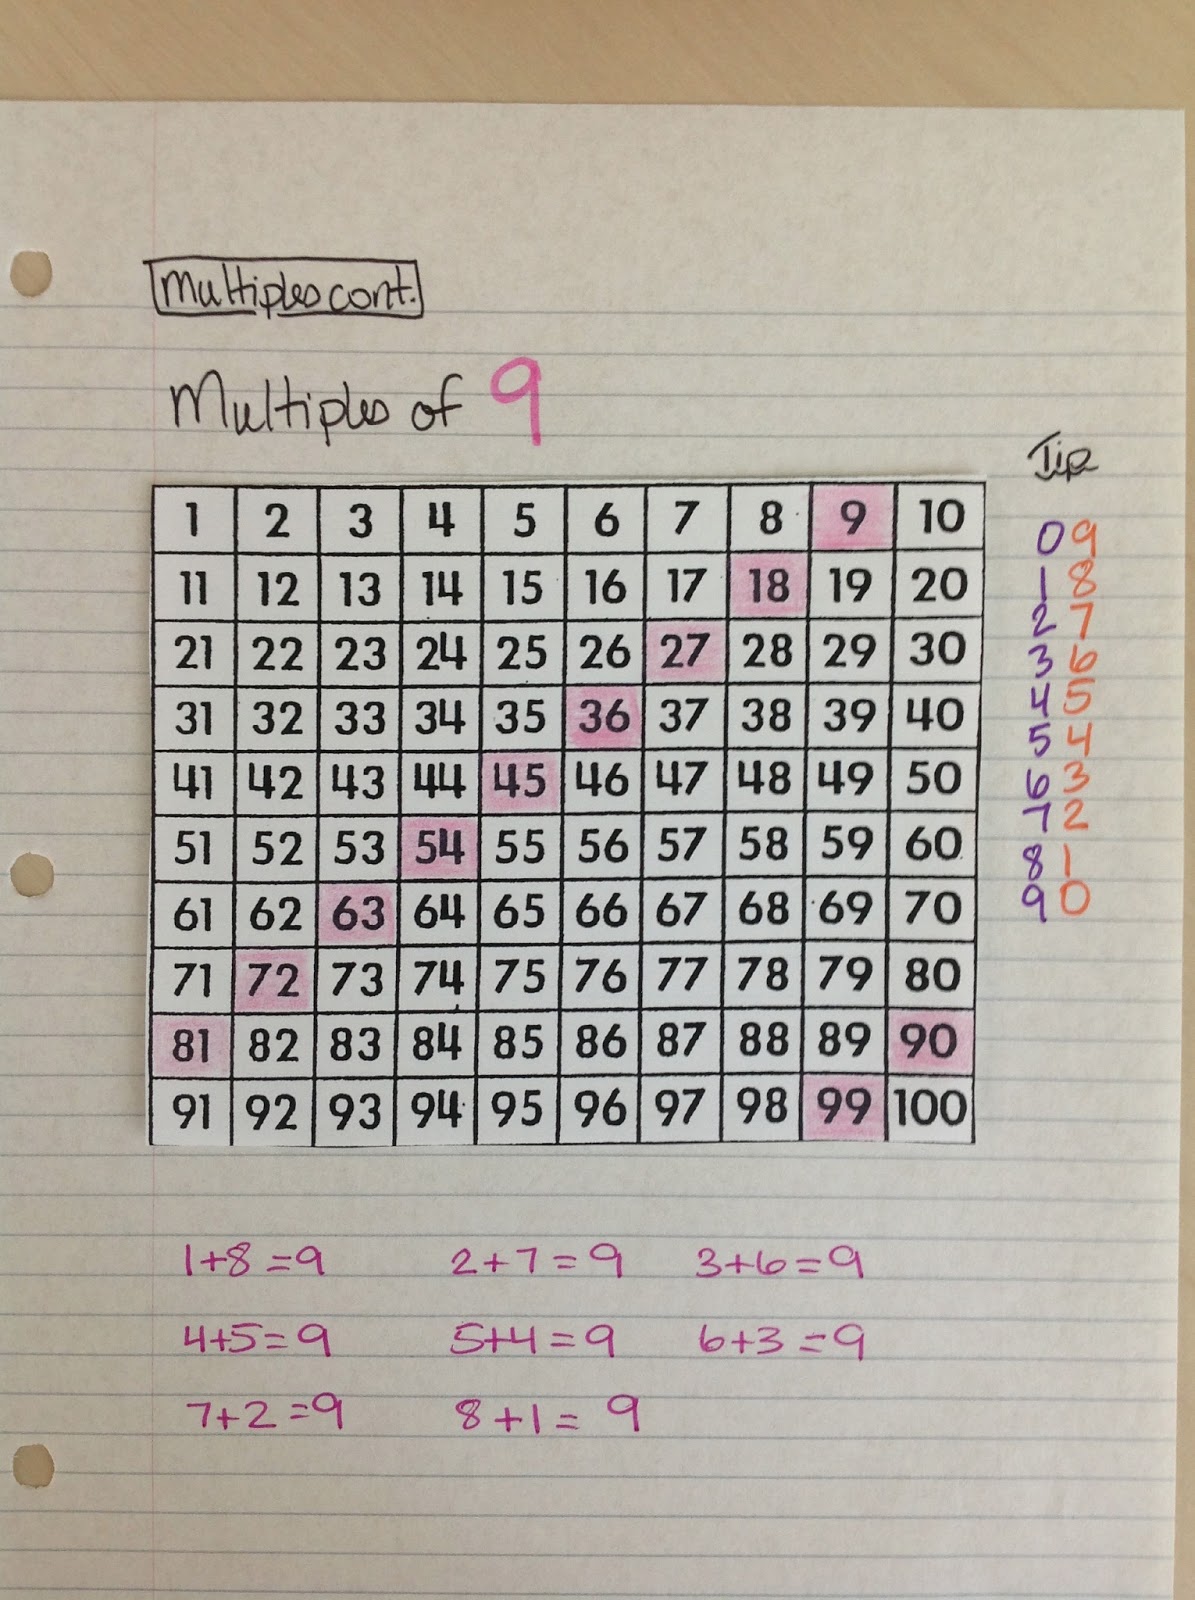 Multiples cont.
Multiples of 9
Tip
1 2 3 4 5 6 7 8 9 10
11 12 13 14 15 16 17 18 19 20
21 22 23 24 25 26 27 28 29 30
31 32 33 34 35 36 37 38 39 40
41 42 43 44 45 46 47 48 49 50
51 52 53 54 55 56 57 58 59 60
61 62 63 64 65 66 67 68 69 70
71 72 73 74 75 76 77 78 79 80
81 82 83 84 85 86 87 88 89 90
91 92 93 94 95 96 97 98 99 100
0 9
1 8
2 7
3 6
4 5
5 4
6 3
7 2
8 1
9 0
1+8=9 2+7=9 3+6=9
4+5=9 5+4=9 6+3=9
7+2=9 8+1=9